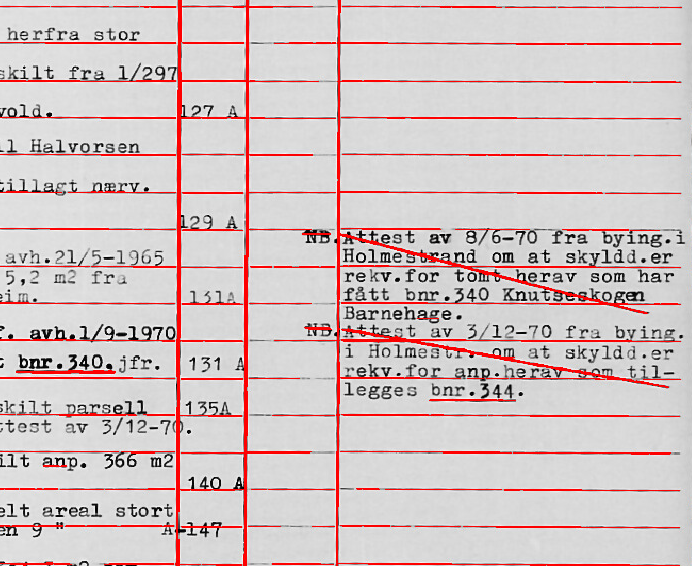 herfra stor
skilt fra 1/297
vold.
127 A
ll Halvorsen
tillagt nærv.
129 A
avh.21/5-1965
5,2 m2 fra
eim.
131A
f. avh.1/9-1970
t bnr.340.jfr.
131 A
skilt parsell
135A
ttest av 3/12-70.
ilt anp. 366 m2
140 A
elt areal stort
en 9 "
A-147
NB. Attest av 8/6-70 fra bying.i
Holmestrand om at skyldd.er
rekv.for tomt herav som har
fått bnr.340 Knutseskogen
Barnehage.
NB. Attest av 3/12-70 fra bying.
i Holmestr. om at skyldd.er
rekv.for anp.herav som til-
legges bnr.344.